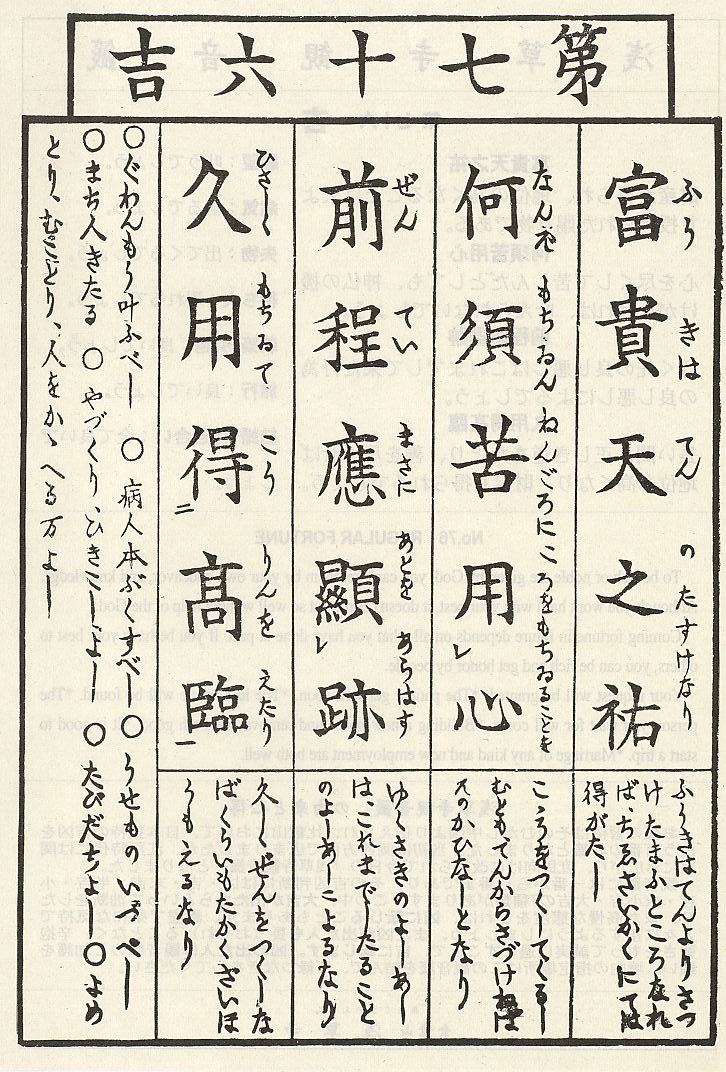 第七十六吉
富貴天之祐
ふうきはてんのたすけなり
ふうきはてんよりさづ
けたまふところなれ
ば、ちゑさいかくにては
得がたし
何須苦用心
なんぞもちゐんねんごろにこゝろをもちゐることを
こゝろをつくしてくるし
むともてんからさづけねば
そのかひなしなり
前程應顯跡
ぜんていまさにあとをあらはす
ゆくさきのよしあし
はこれまでしたること
のよしあしによるなり
久用得高臨
ひさしくもちゐてこうりんをえたり
久しくぜんをつくしな
ばくらいもたかくざいほ
うもえるなり
○ぐわんもう叶ふべし ○病人本ぶくすべし ○うせものいづべし
○まち人きたる ○やづくり、ひきこしよし ○たびだちよし ○よめ
とり、むことり、人をかゝへる万よし